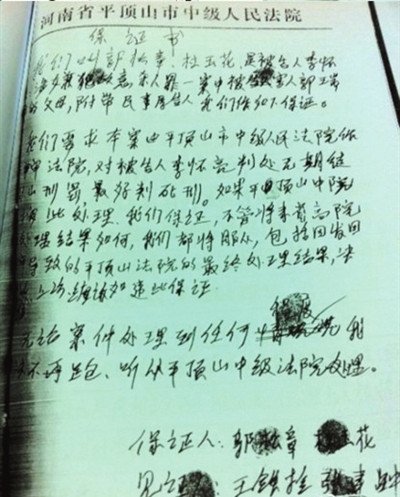 河南省平顶山市中级人民法院
保证书
我们叫郭松章、杜玉花,是被告人李怀
故意杀人罪一案中被害人郭
父母,附带民事原告人。我们作如下保证。
我们要求本案由平顶山市中级人民法院作
法院,对被告人李怀亮判处无期徒
刑,最好判死刑。如果平顶山中院
此处理,我们保证,不管将来省高院
处理结果如何,我们都将服从,包括因发回
导致的平顶山法院的最终处理结果,决
上访,绝不违此保证
无论案件处理到任何 我
不再 、听从平顶山中级法院处理。
保证人:郭 章 花
见证 :王铁拴 张